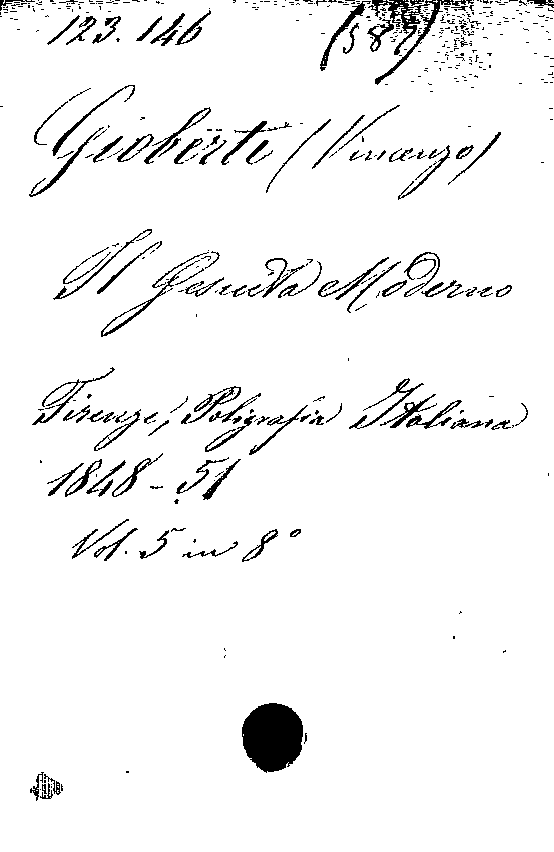 123.146 (582)
Gioberti (Vincenzo)
Il Gesuita Moderno
Firenze, Poligrafia Italiana
1848-51
Vol. 5 in 8°